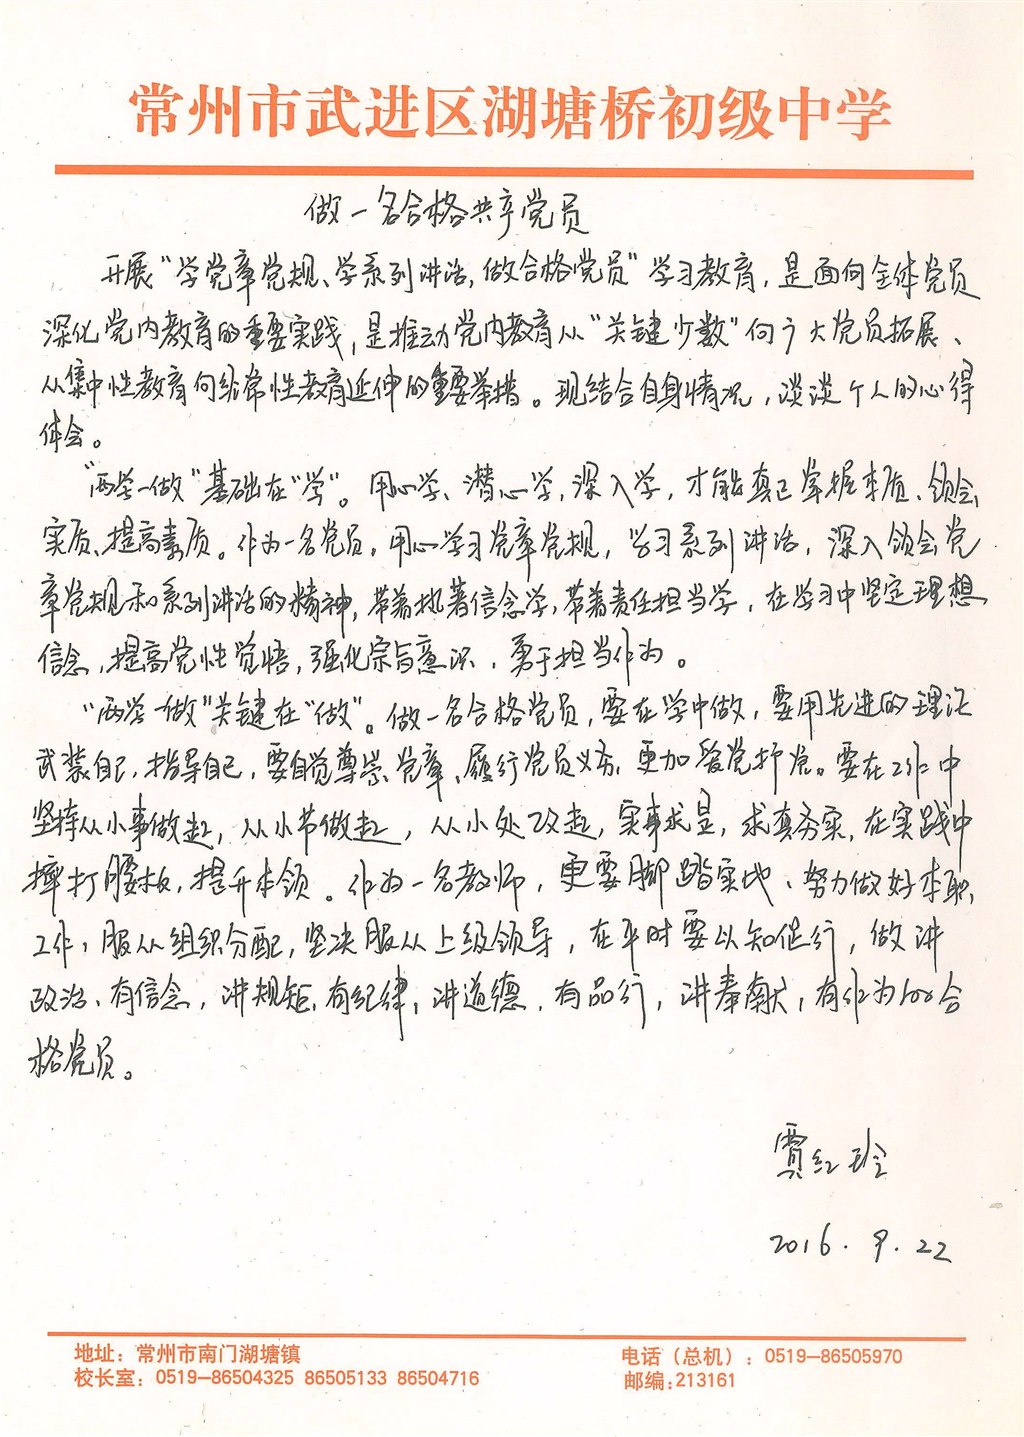 常州市武进区湖塘桥初级中学
做一名合格共产党员
开展“学党章党规、学系列讲话,做合格党员”学习教育,是面向全体党员
深化党内教育的重要实践,是推动党内教育从“关键少数”向广大党员拓展、
从集中性教育向经常性教育延伸的重要举措。现结合自身情况,谈谈个人的心得
体会。
“两学一做”基础在“学”。用心学、潜心学,深入学,才能真正掌握本质、领会
实质、提高素质。作为一名党员,用心学习党章党规,学习系列讲话,深入领会党
章党规和系列讲话的精神,带着执著信念学,带着责任担当学,在学习中坚定理想
信念,提高党性觉悟,强化宗旨意识,勇于担当作为。
“两学一做”关键在“做”。做一名合格党员,要在学中做,要用先进的理论
武装自己,指导自己,要自觉尊崇党章、履行党员义务,更加爱党护党。要在工作中
坚持从小事做起,从小节做起,从小处改起,实事求是,求真务实,在实践中
摔打腰板,提升本领。作为一名教师,更要脚踏实地、努力做好本职
工作,服从组织分配,坚决服从上级领导,在平时要以知促行,做讲
政治、有信念,讲规矩,有纪律,讲道德,有品行,讲奉献,有作为的合
格党员。
贾红玲
2016.9.22
地址:常州市南门湖塘镇
电话(总机):0519—86505970
校长室:0519—86504325 86505133 86504716
邮编:213161